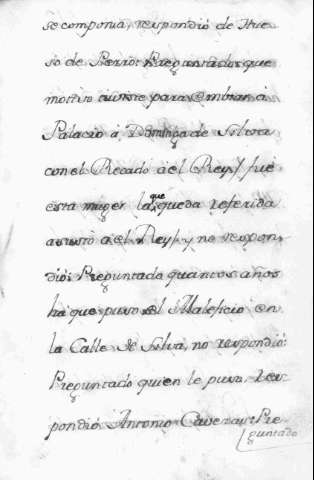 se componia, respondió de Hue-
so de Perro: Preguntado que
motivo tuviste para embiar â
Palacio á Dominga de Silva
con el Recado á el Rey / fuè
esta muger la que queda referida
asusto á el Rey / y no respon-
dió: Preguntado quantos años
hà que puso el Maleficio en
la Calle de Silva, no respondiò:
Preguntado quien le puso. Res-
pondió Antonio Pre-
guntado